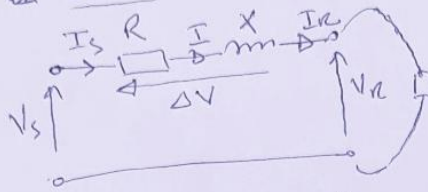 I_S R I X I_R
ΔV
V_S V_R